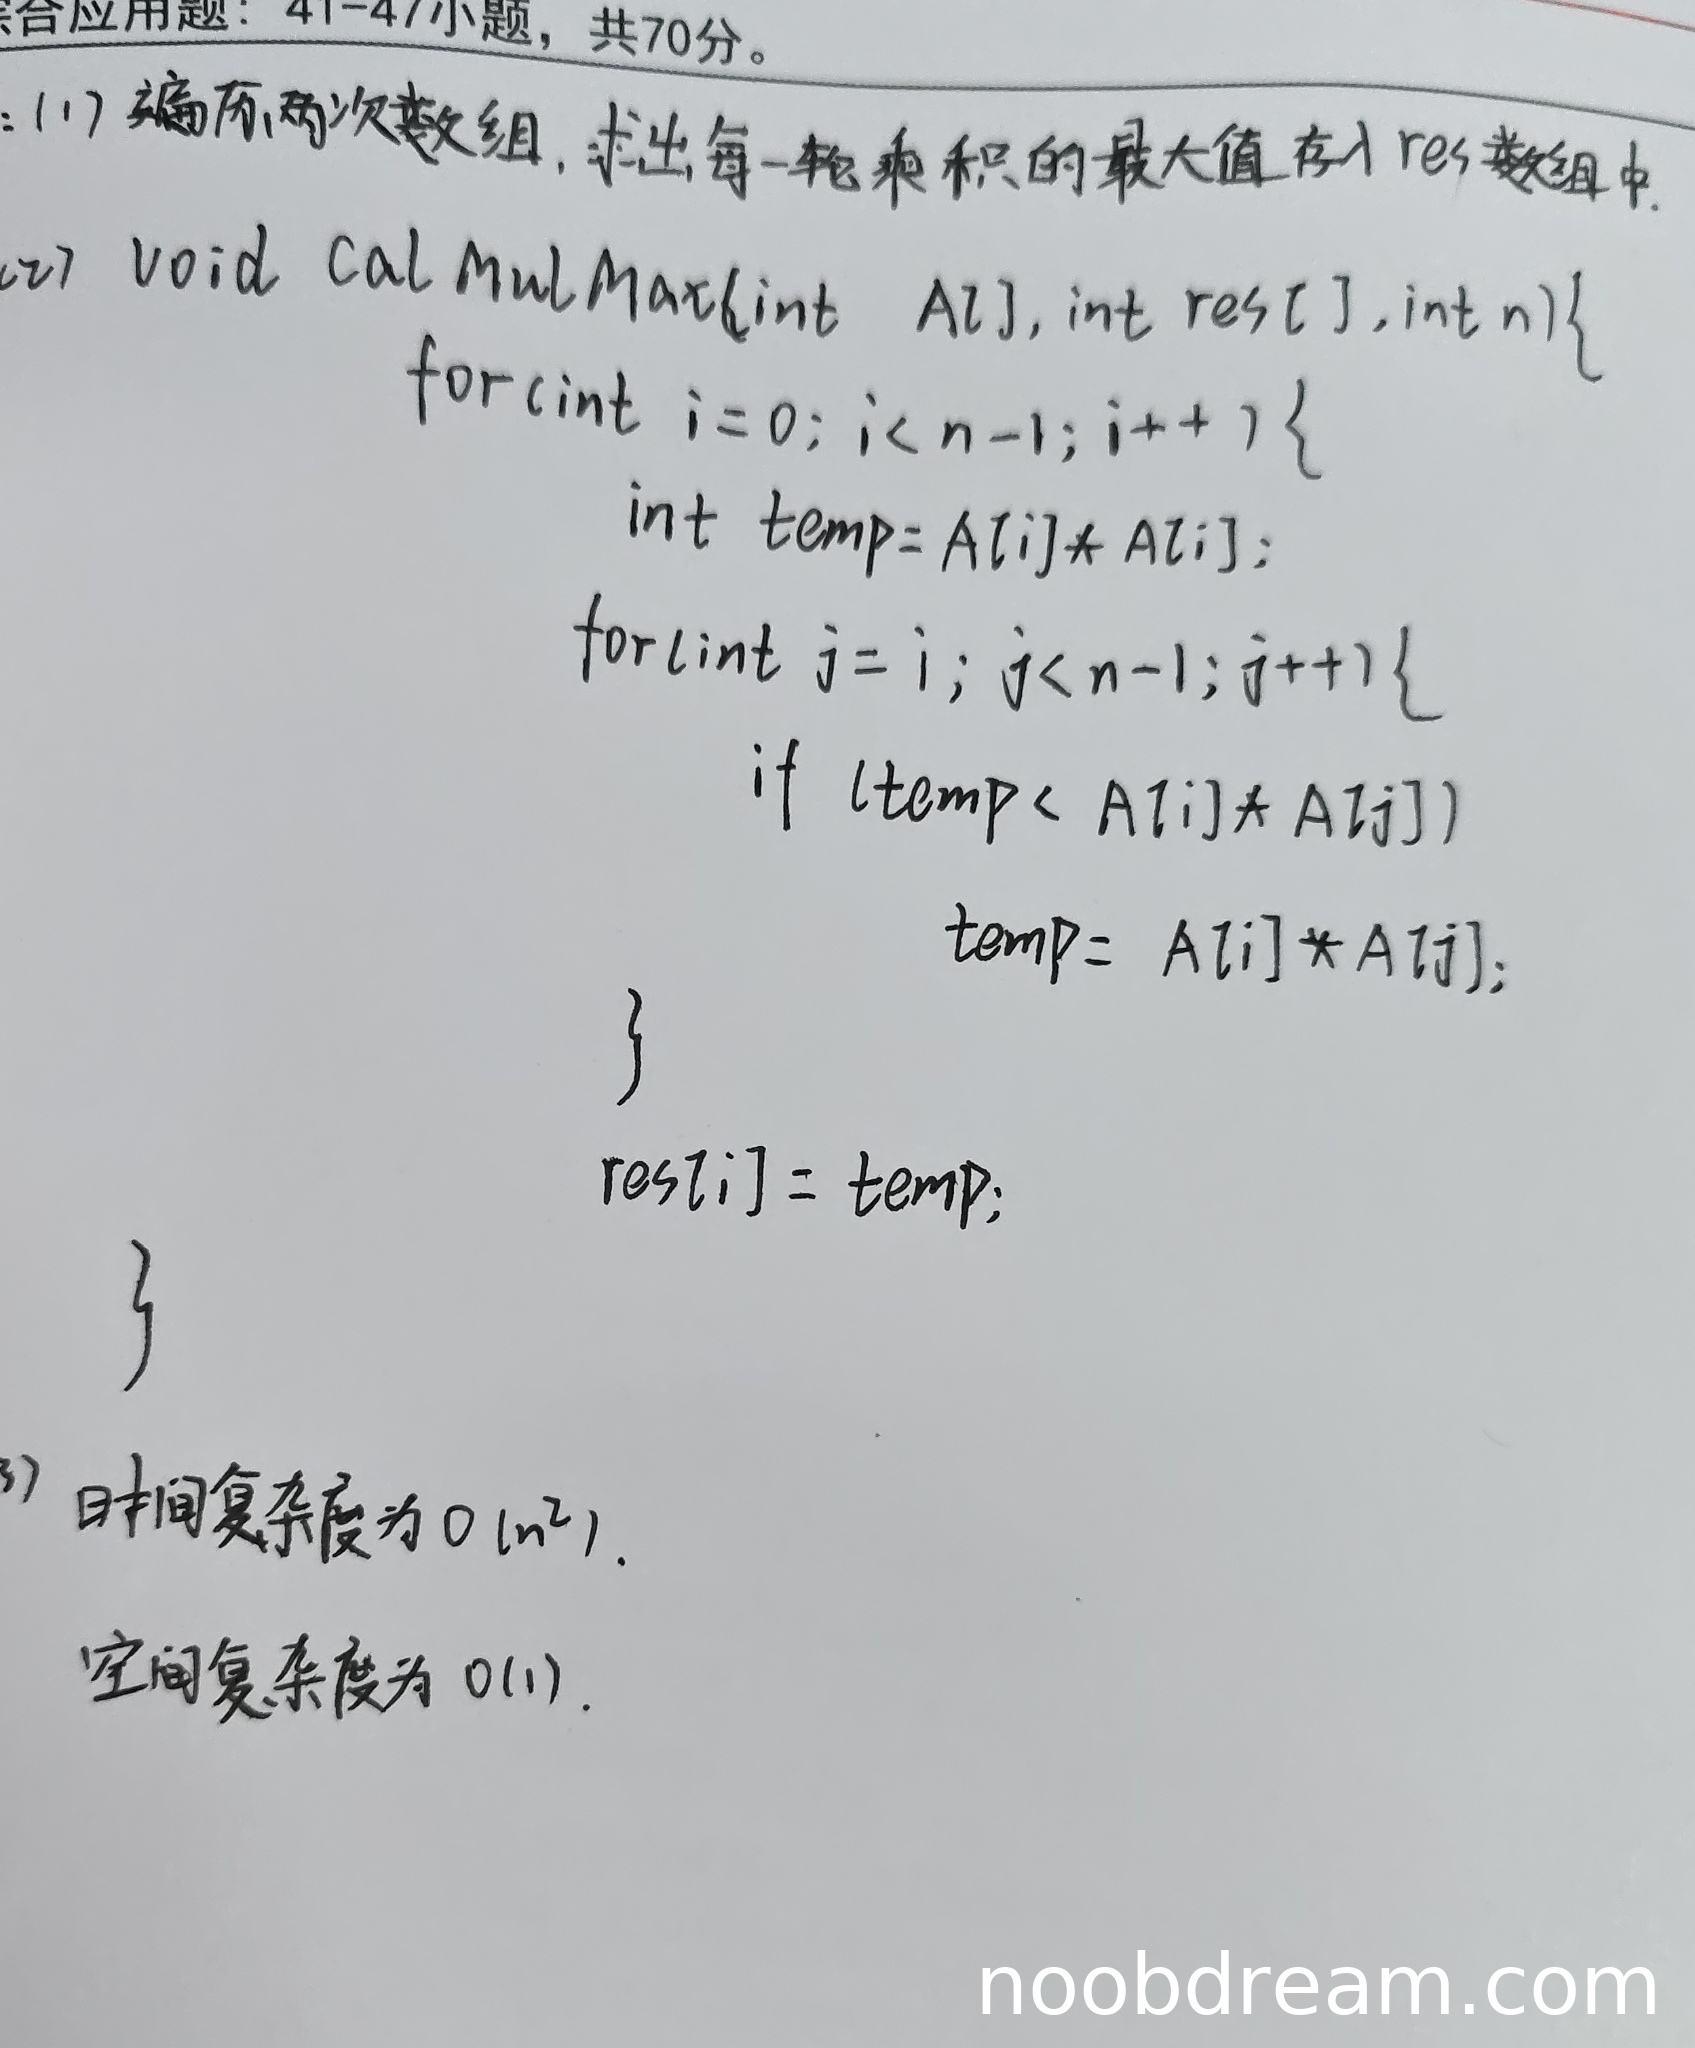 综合应用题：41-47小题，共70分。
:(1) 遍历两次数组,求出每一轮乘积的最大值存入res数组中.
(2) void CalMulMax(int A[], int res[], int n){
for(int i=0; i<n-1; i++){
int temp=A[i]*A[i];
for(int j=i; j<n-1; j++){
if (temp< A[i]*A[j])
temp= A[i]*A[j];
}
res[i]= temp;
}
3) 时间复杂度为O(n²).
空间复杂度为O(1).
noobdream.com